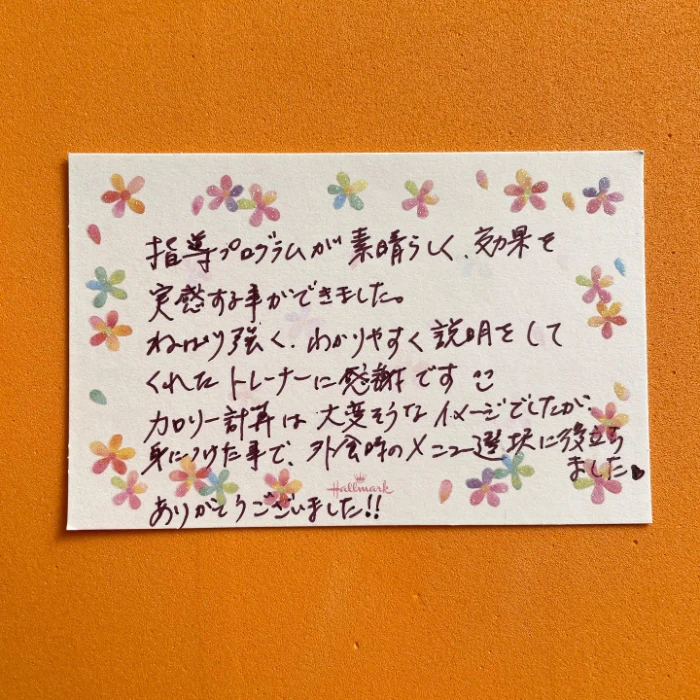 指導プログラムが素晴らしく、効果を
実感する事ができました。
ねばり強く、わかりやすく説明をして
くれたトレーナーに感謝です
カロリー計算は大変そうなイメージでしたが、
身につけた事で、外食時のメニュー選択に役立ち
ました♥
Hallmark
ありがとうございました!!